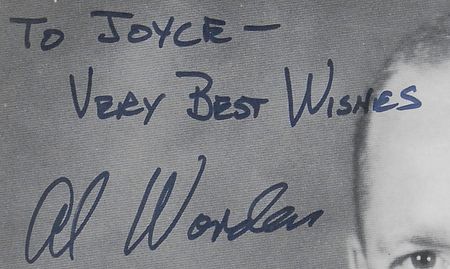 TO JOYCE —
VERY BEST WISHES
Al Worden